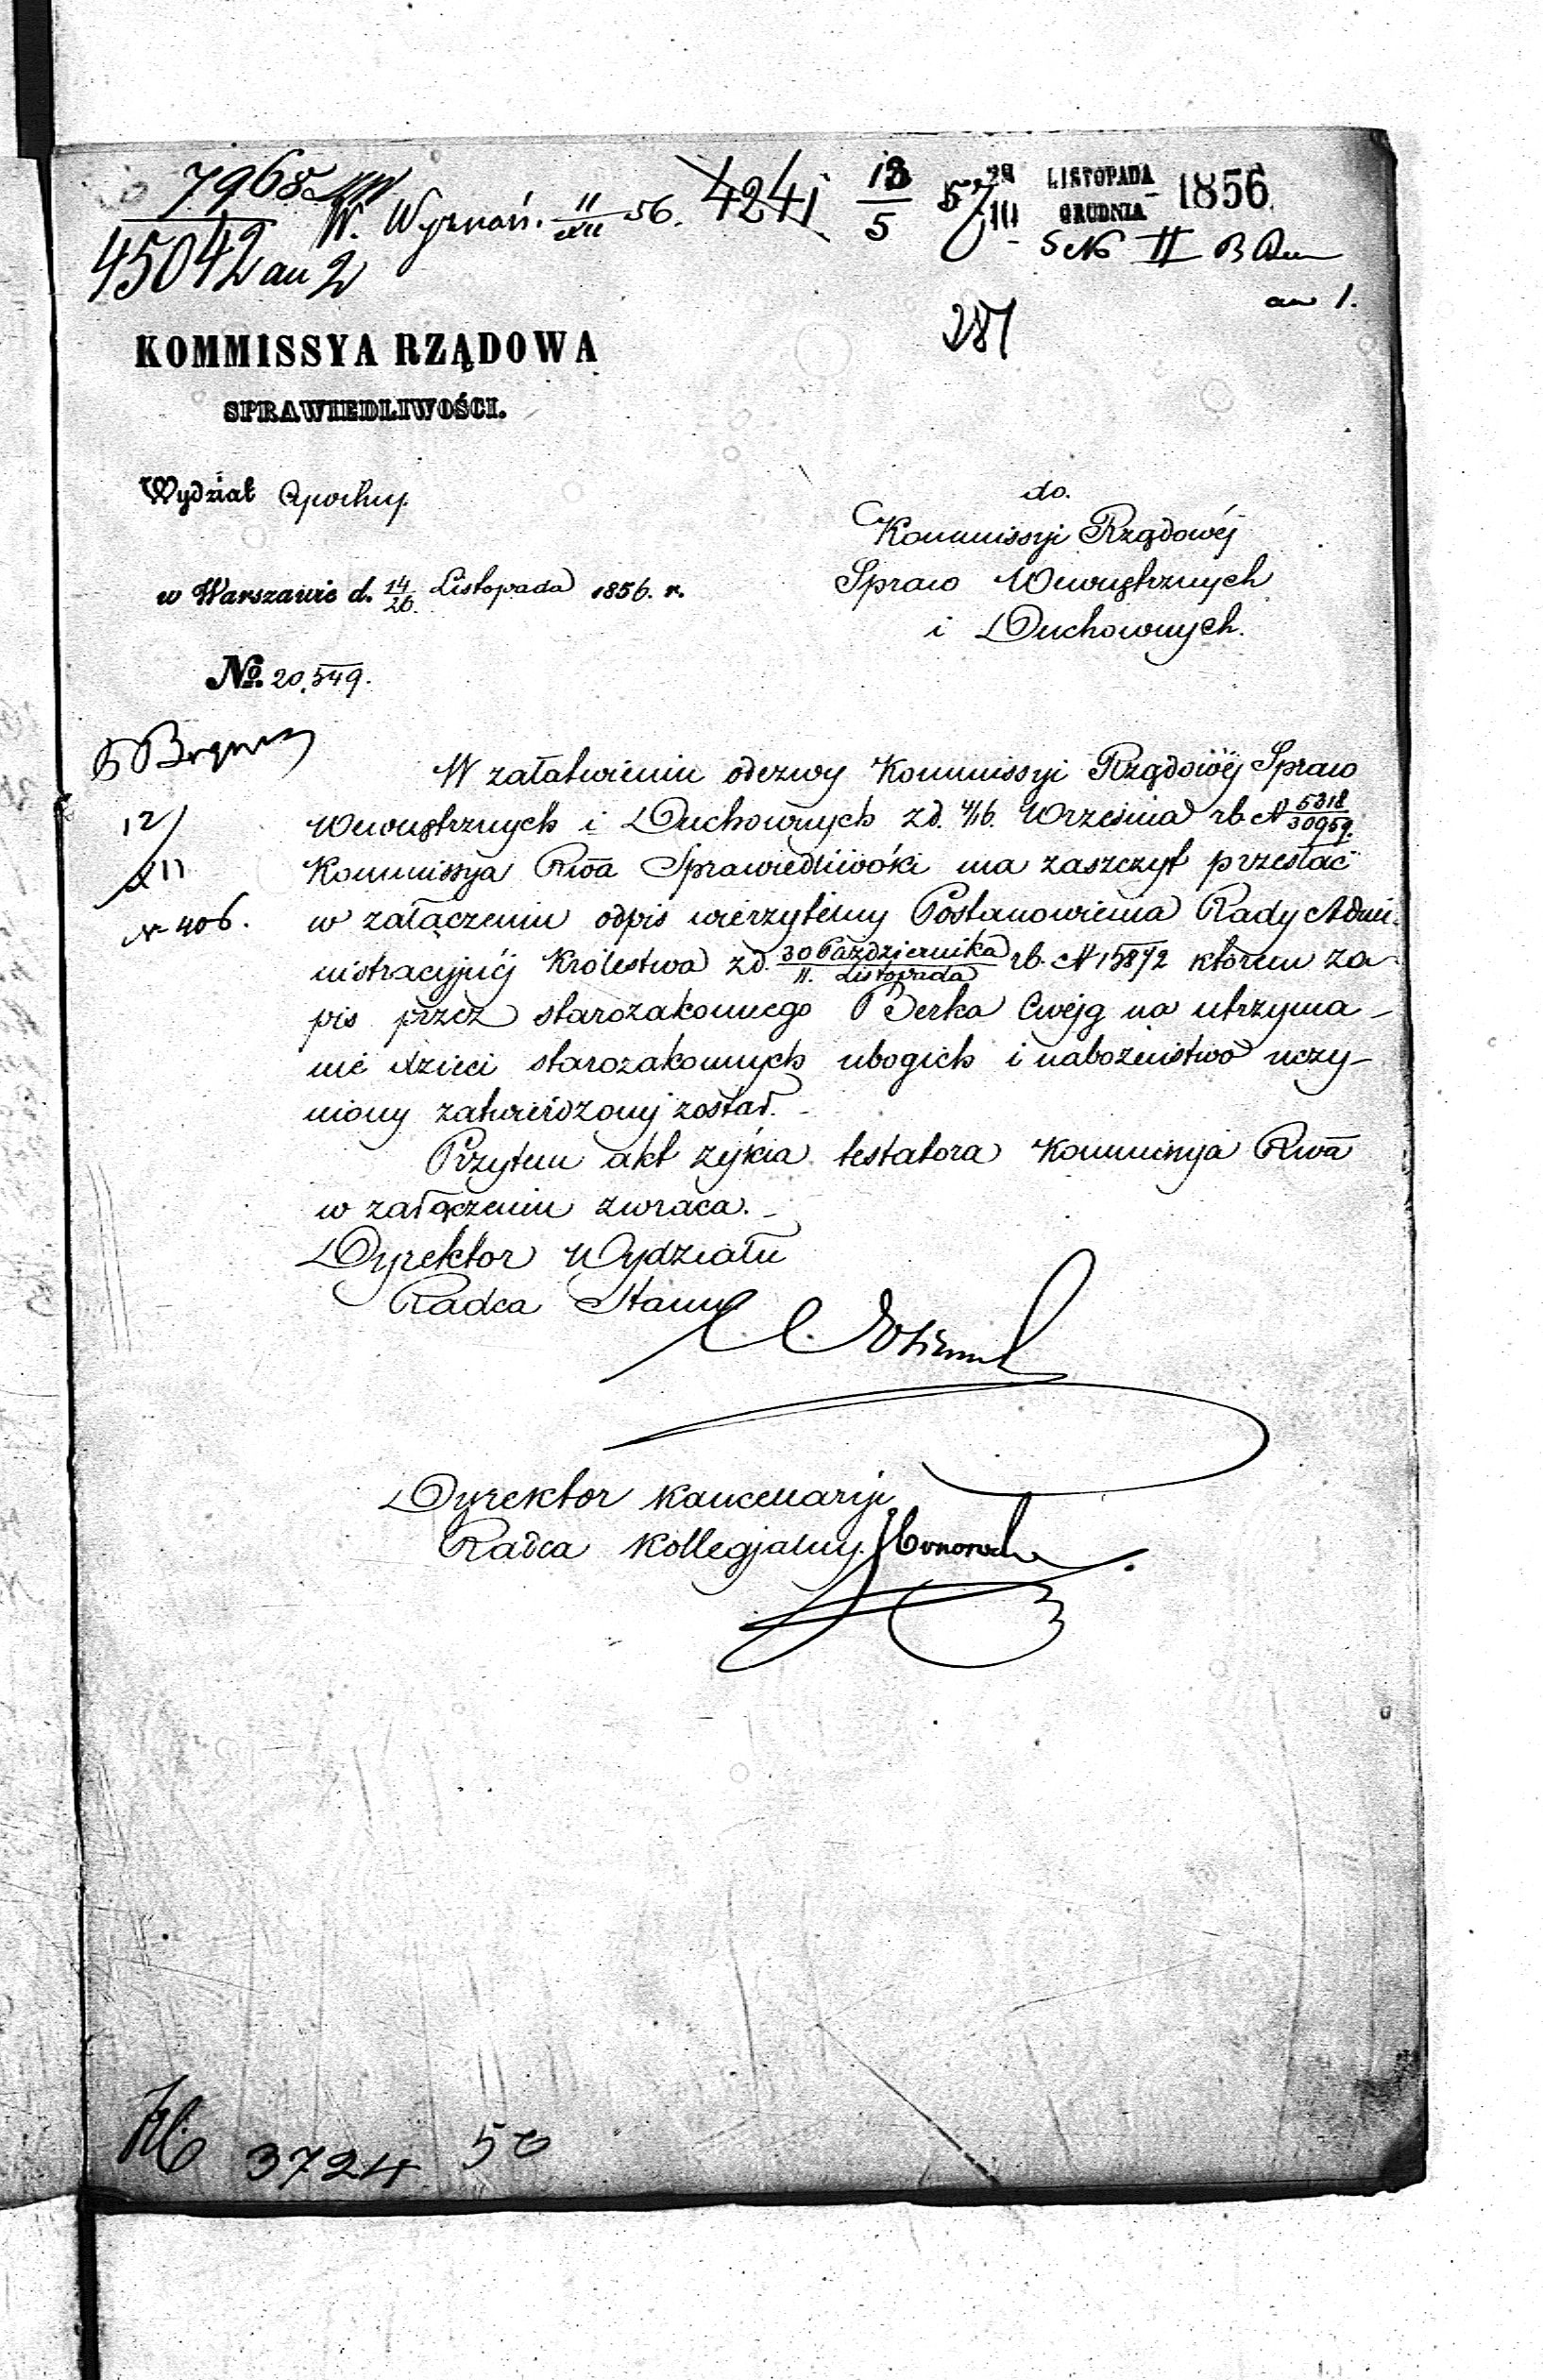 7968
45042 au 2
W. Wyznań. 11/XII 56.
4241
13/5 57
28 LISTOPADA
10 GRUDNIA 1856
II
287
KOMMISSYA RZĄDOWA
SPRAWIEDLIWOŚCI.
Wydział
w Warszawie d. 14/26 Listopada 1856. r.
No. 20,549.
do.
Kommissyi Rządowéj
Spraw Wewnętrznych
i Duchownych.
12/
XII
N 406.
W załatwieniu odezwy Kommissyi Rządowéj Spraw
Wewnętrznych i Duchownych z d. 4/16. Września rb. N 5318/30959.
Kommissya Rwa Sprawiedliwości ma zaszczyt przesłać
w załączeniu odpis wierzytelny Postanowienia Rady Admi-
nistracyjnéj Królestwa z d. 30 Października/11. Listopada rb. N 15872 którem za-
pis przez starozakonnego Berka Cwejg na utrzyma-
nie dzieci starozakonnych ubogich i nabożeństwo uczy-
niony zatwierdzony został.
Przytem akt zejścia testatora Kommissya Rwa
w załączeniu zwraca.
Dyrektor Wydziału
Radca Stanu
Dyrektor Kancellaryi
Radca Kollegjalny.
3724
50